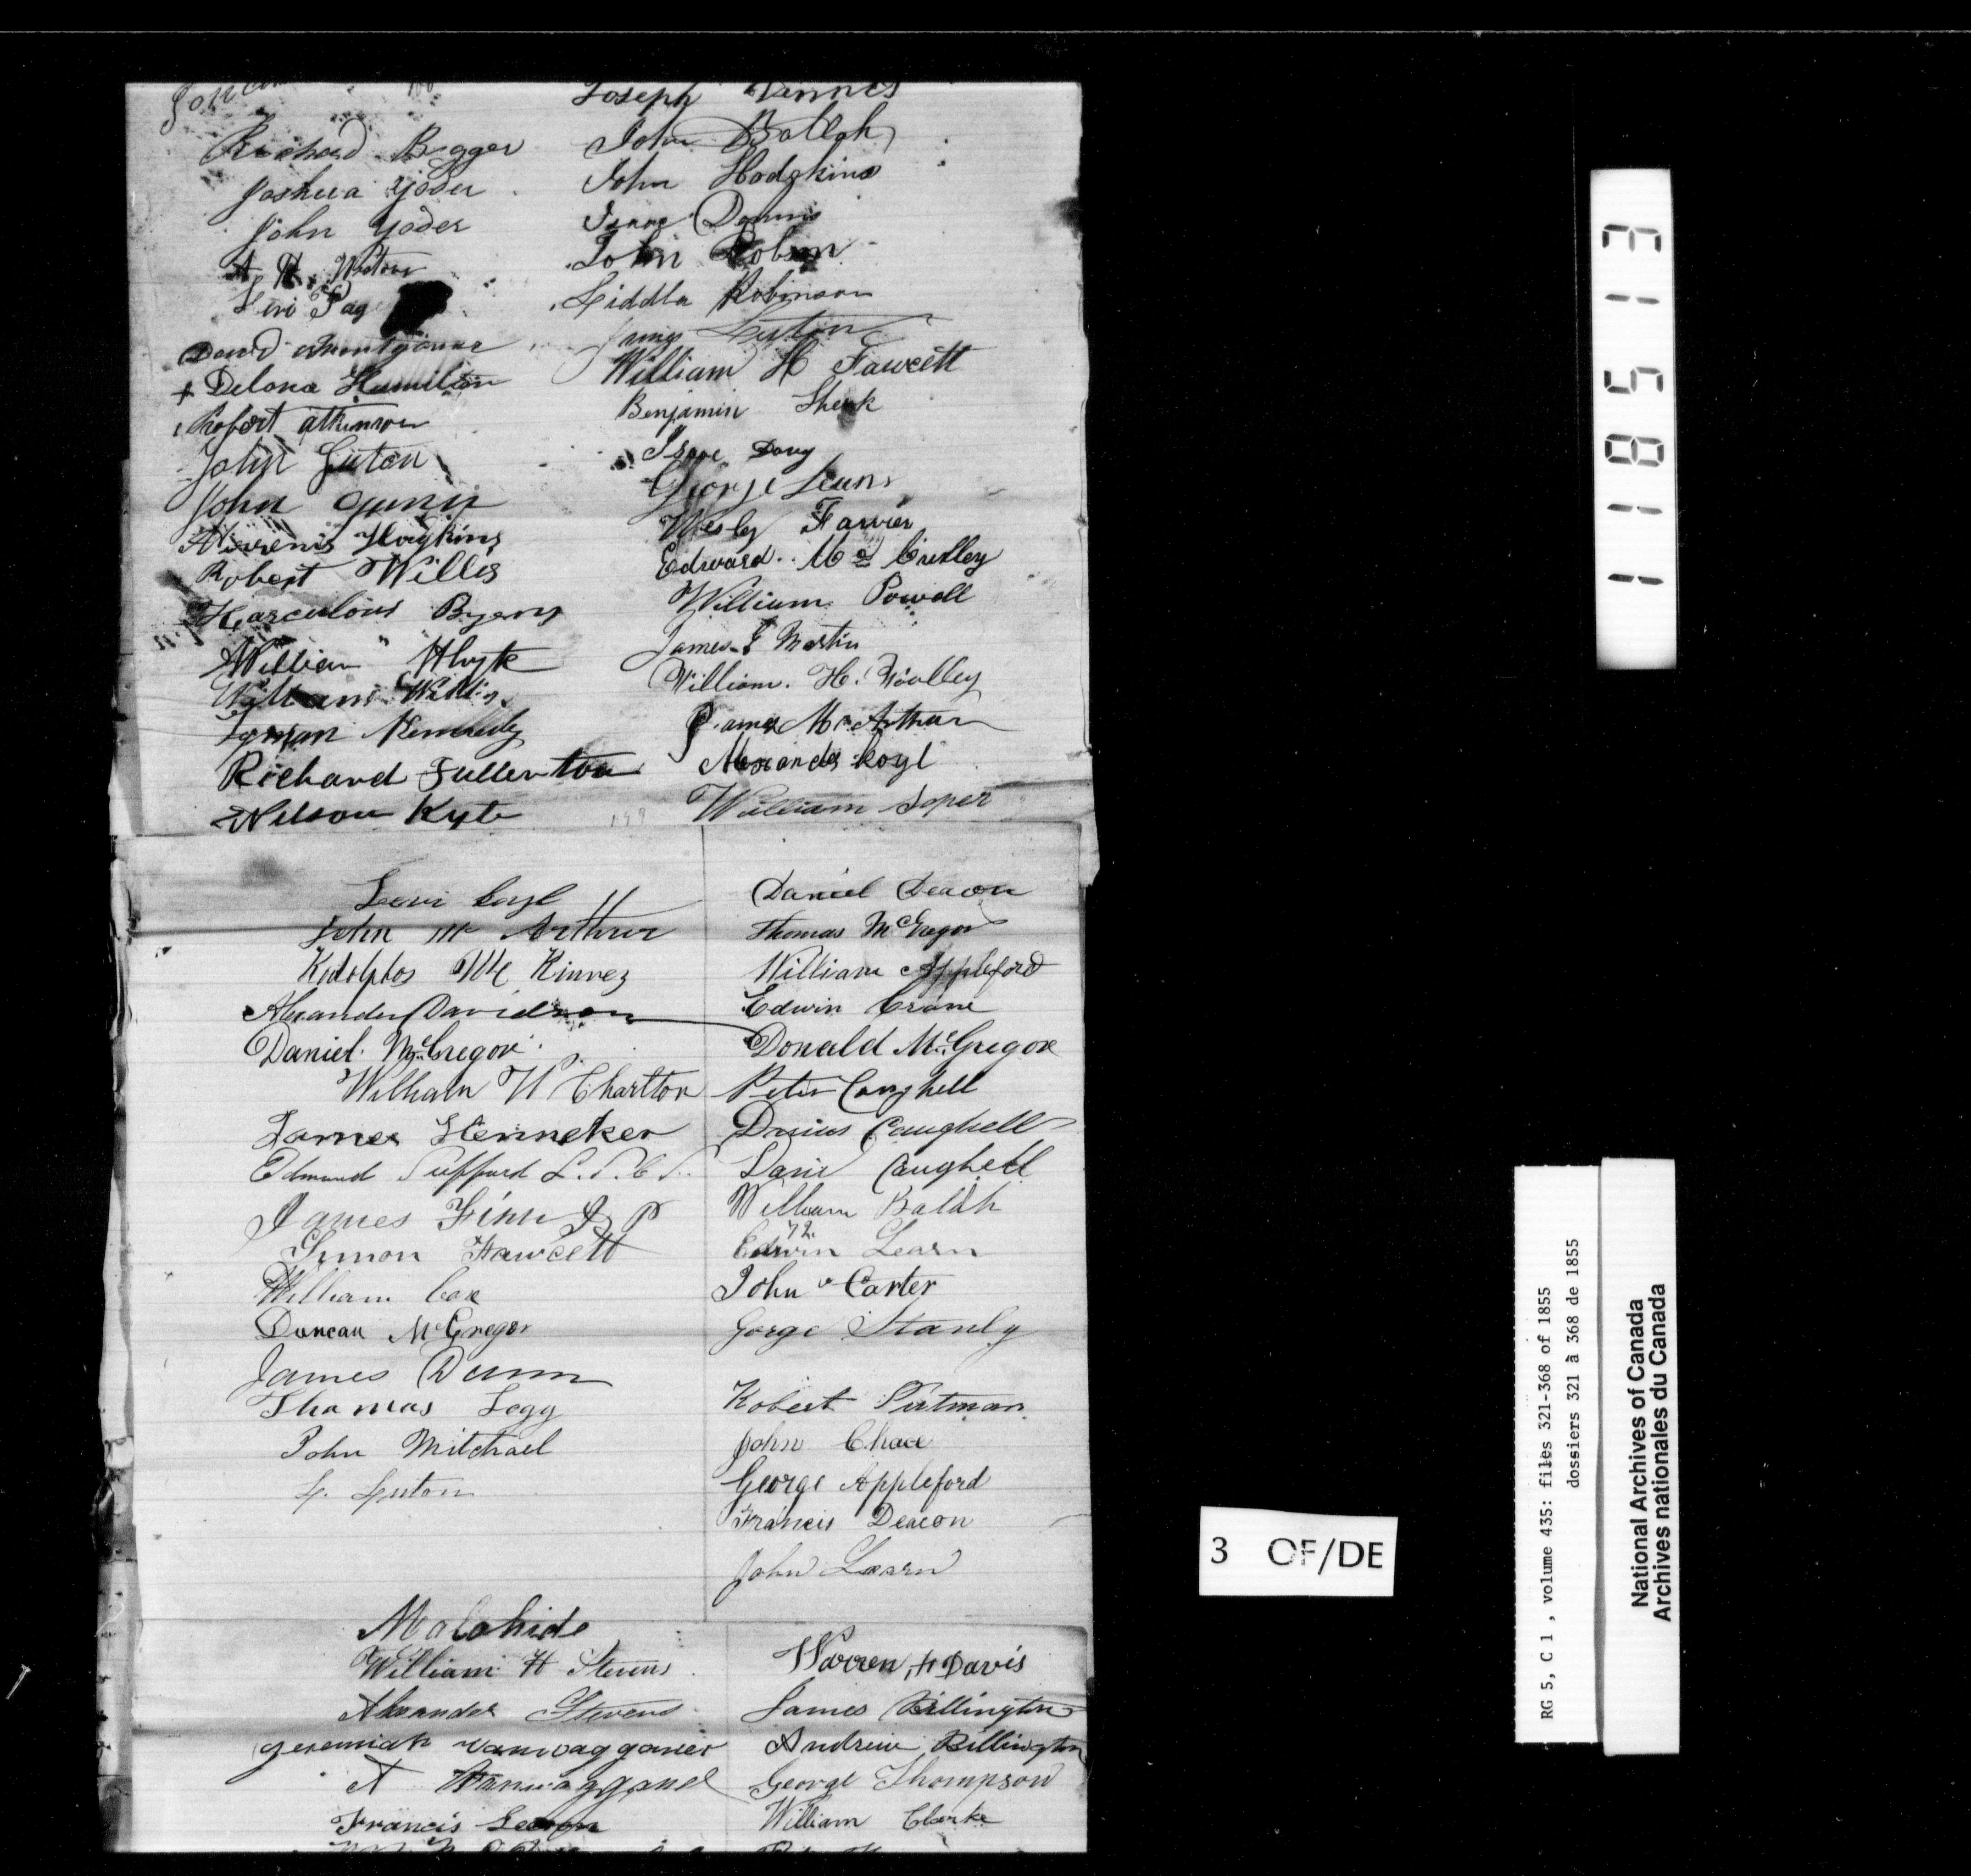 Joseph
Richard Bigger
Joshua Yoder
John Yoder
Levi Pag
David Montgomer
+ Delona Hamilton
Robert Atkinson
John Luton
John Gunn
Hodgkins
Robert Willis
Harculous Byerns
William Whyte
William Willis
Lyman Kennedy
Richard Fullerton
Nelson Kyte
John Bollah
John Hodgkins
Isaac Dennis
John Robson
Siddla Robinson
Luton
William H Fawcett
Benjamin Sherk
Isaac Doug
George Leans
Wesly Farrier
Edward Mc Curlley
William Powell
James E Martin
William. H. Woolley
James McArthur
Alexander Coyl
William Soper
Levi Coyl
John Mc Arthur
Mc Kinney
Alexander Davidson
Daniel McGregor
William W Charlton
James Henneker
Edmund Sufford
James Finn J P
Simon Fawcett
William Cox
Duncan McGregor
James Dunn
Thomas Legg
John Mitchael
L. Luton
Daniel Deacon
Thomas McGregor
William Appleford
Edwin Crane
Donald McGregor
Peter Caughell
Darius Caughell
David Caughell
William Balah
Edwin Learn
John Carter
Gorge Stanly
Robert Putman
John Chace
George Appleford
Francis Deacon
John Learn
Malahide
William H Stevens
Alexander Stevens
Jeremiah Vanwagganer
A Vanwagganel
Francis Learn
Warren H Davis
James Billington
Andrew Billington
George Thompson
William Clarke
3 OF/DE
115813
RG 5, C 1 , volume 435: files 321-368 of 1855
dossiers 321 à 368 de 1855
National Archives of Canada
Archives nationales du Canada